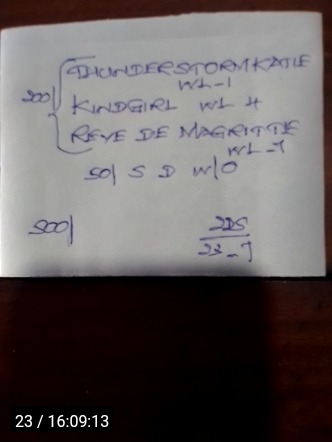 THUNDERSTORM KATIE
WL-1
200/ KINDGIRL WL 4
REVE DE MAGRITTE
WL-7
50/ S D W/O
500/
2DS
23-7
23 / 16:09:13